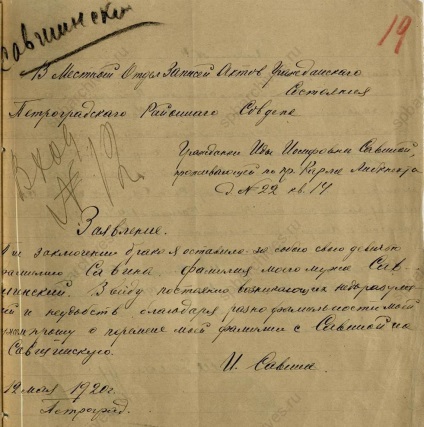 Савшинский
19
В Местный Отдел Записей Актов Гражданского
Состояния
Петроградского Районного Совдепа
Вход
№ 19
Гражданки Иды Иосифовны Савиной,
проживающей по пр. Карла Либкнехта
д. № 22 кв. 14
Заявление.
При заключении брака я оставила за собою свою девичью
фамилию Савина фамилия моего мужа Сав-
шинский. Ввиду постоянно возникающих недоразуме-
ний и неудобств благодаря разнофамильности мой
прошу о перемене моей фамилии с Савиной на
Савшинскую.
И. Савина.
12 мая 1920 г.
Петроград.